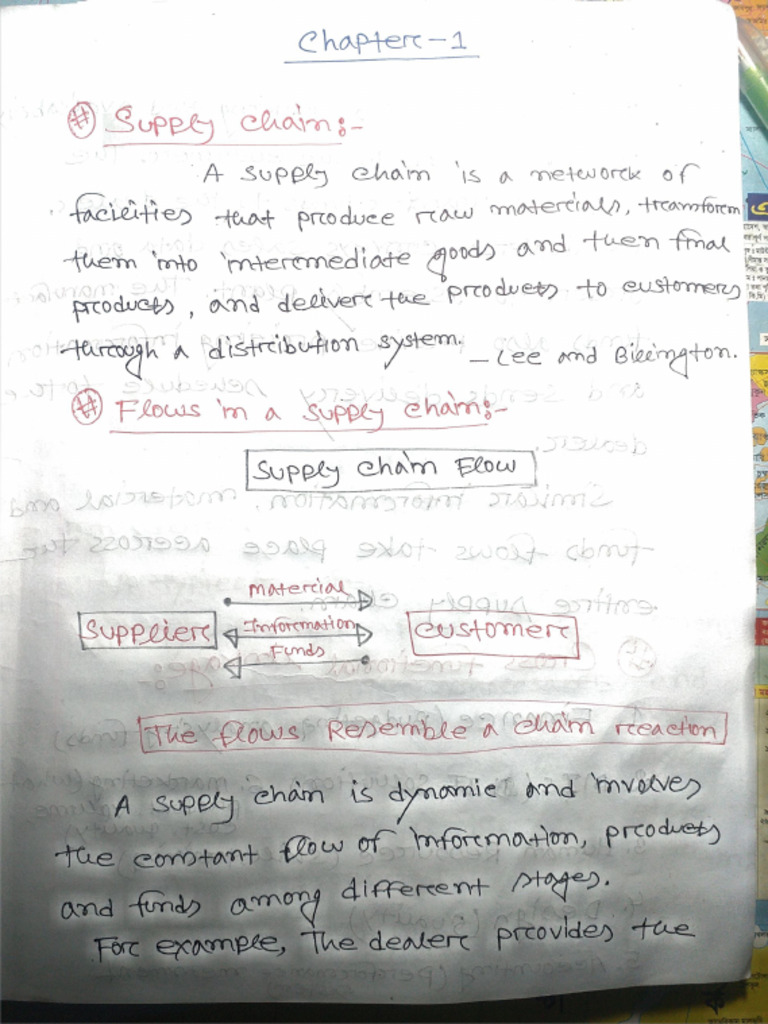 Chapter-1
# Supply chain:-
A supply chain is a network of
facilities that produce raw materials, transform
them into intermediate goods and then final
products, and deliver the products to customers
through a distribution system. - Lee and Billington.
# Flows in a supply chain:-
Supply chain Flow
Material
Supplier Information customer
Funds
The flows Resemble a chain reaction
A supply chain is dynamic and involves
the constant flow of information, products
and funds among different stages.
For example, The dealer provides the